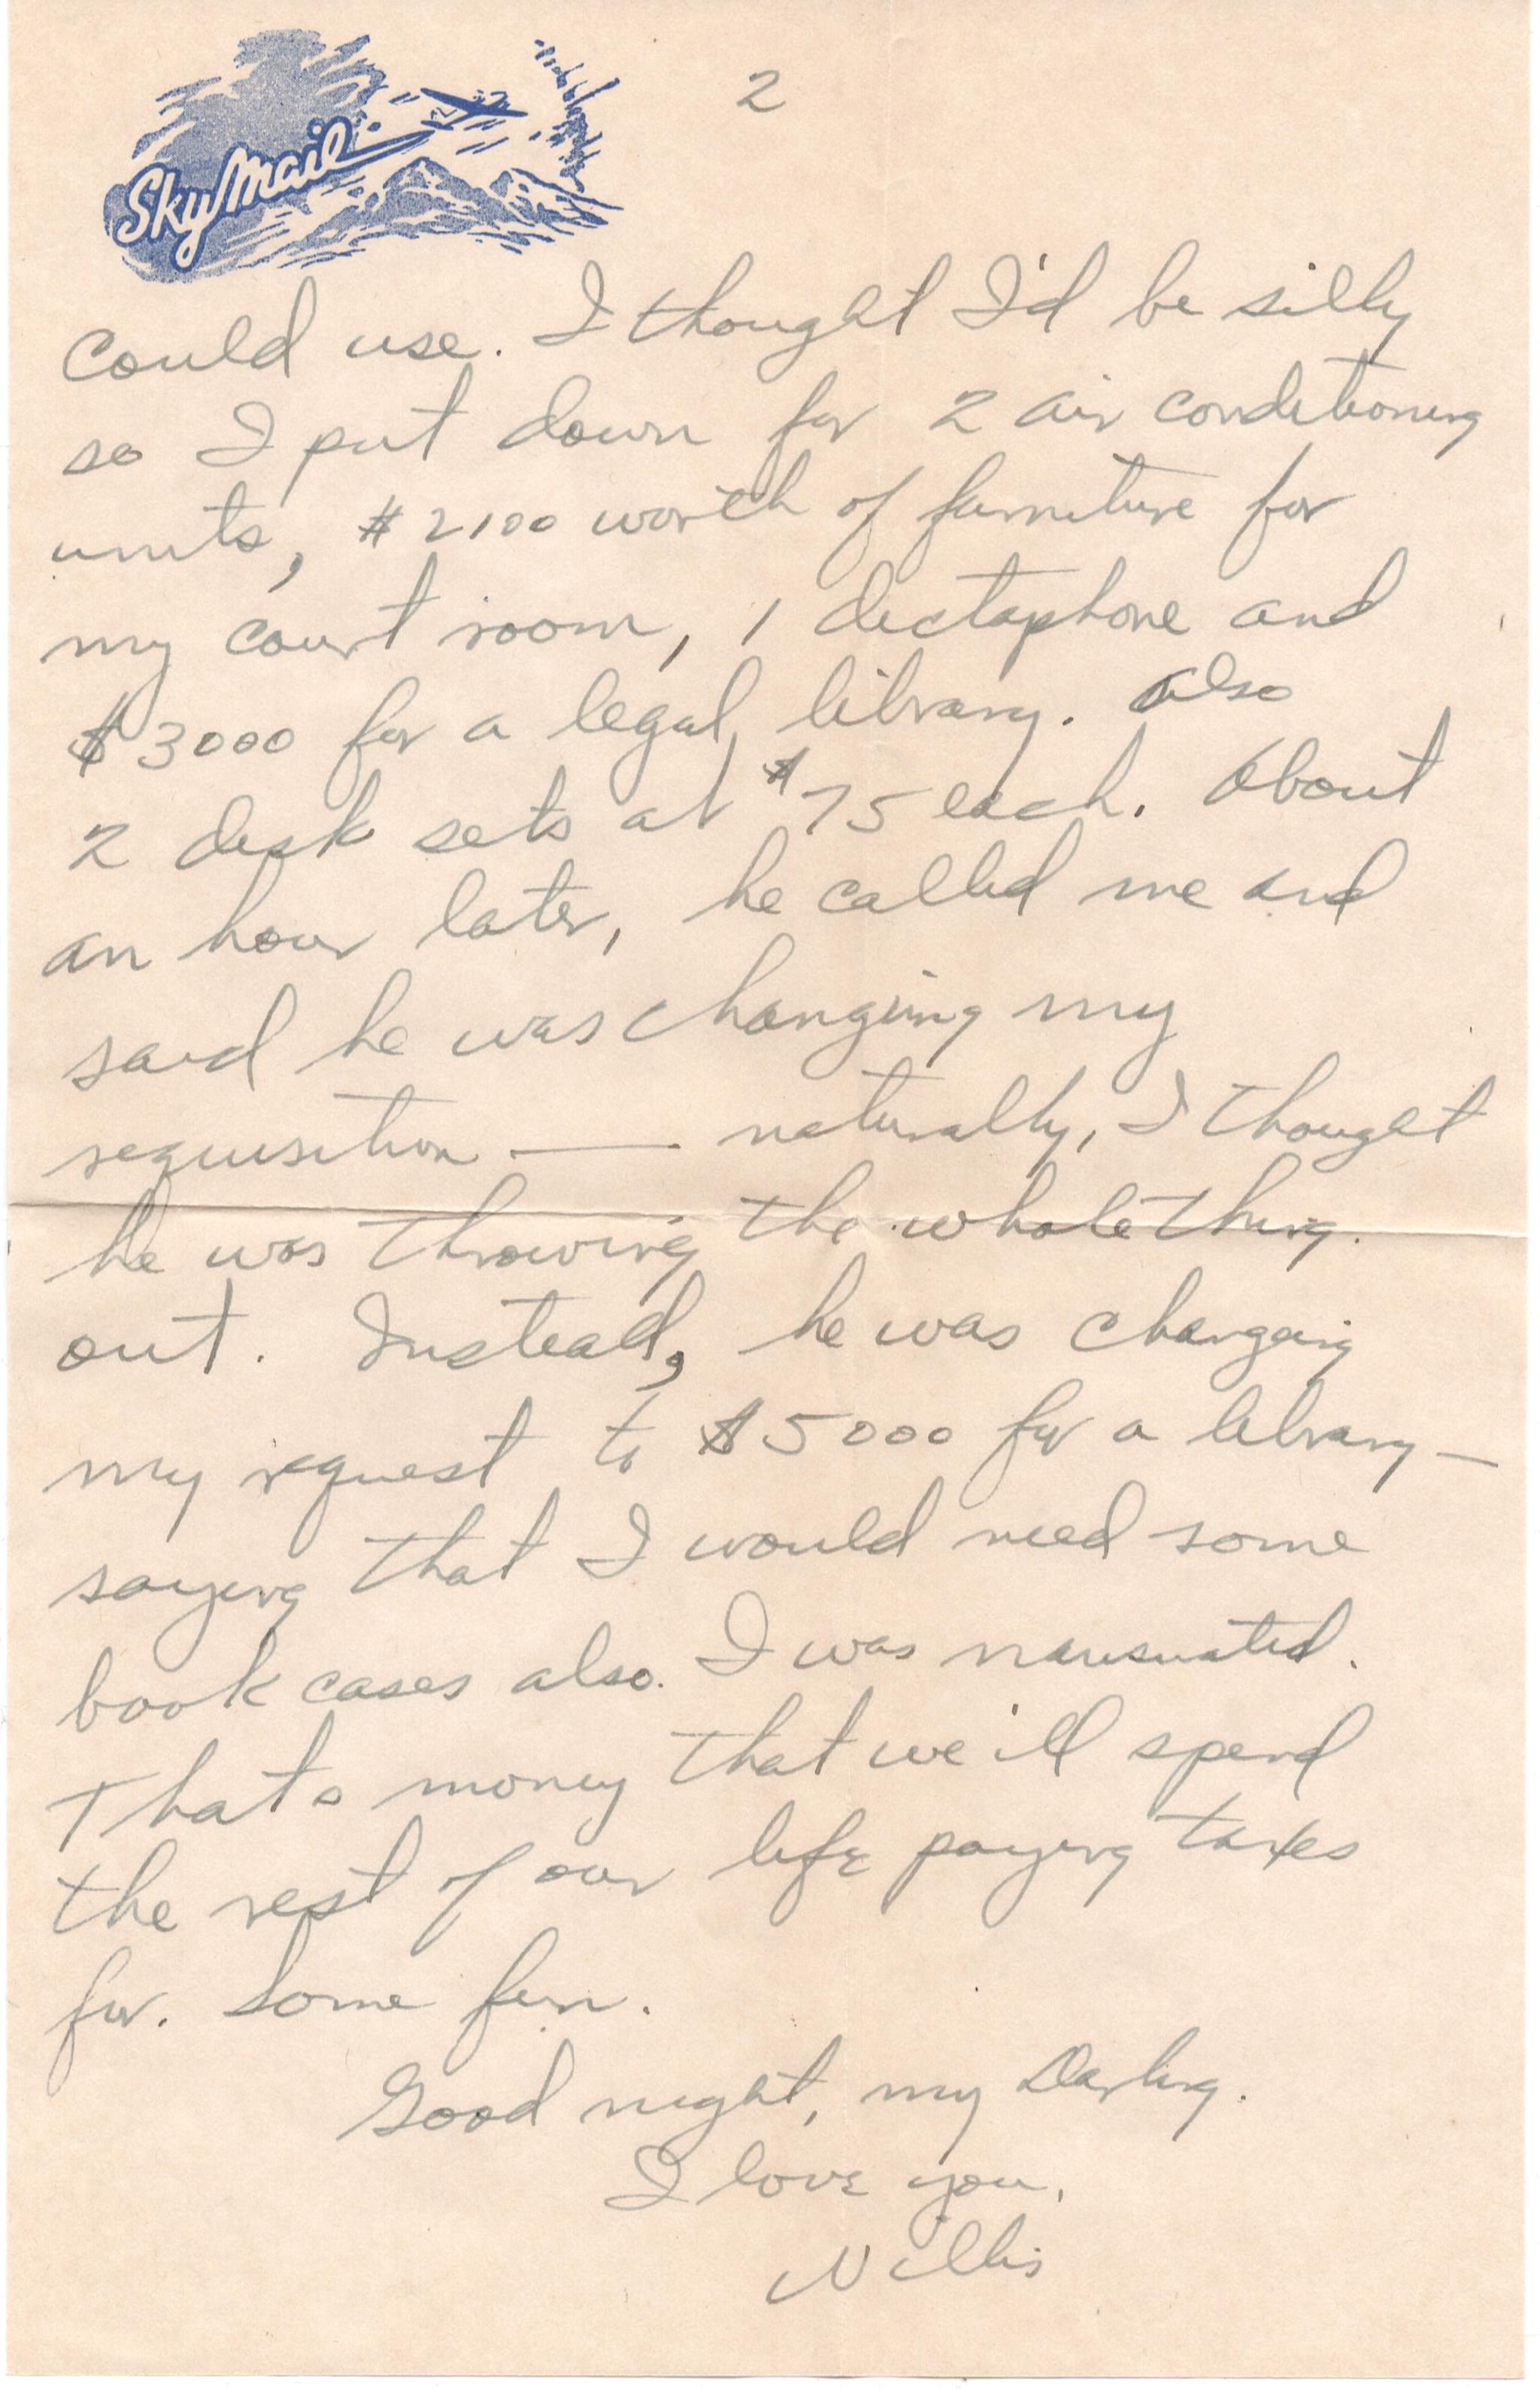 SkyMail
2
Could use. I thought I'd be silly
so I put down for 2 air conditioning
units, $2100 worth of furniture for
my court room, 1 dictaphone and
$3000 for a legal library. Also
2 desk sets at $75 each. About
an hour later, he called me and
said he was changing my
requisition — naturally, I thought
he was throwing the whole thing
out. Instead, he was changing
my request to $5000 for a library —
saying that I would need some
book cases also. I was nauseated.
Thats money that we'll spend
the rest of our life paying taxes
for. Some fun.
Good night, my Darling.
I love you,